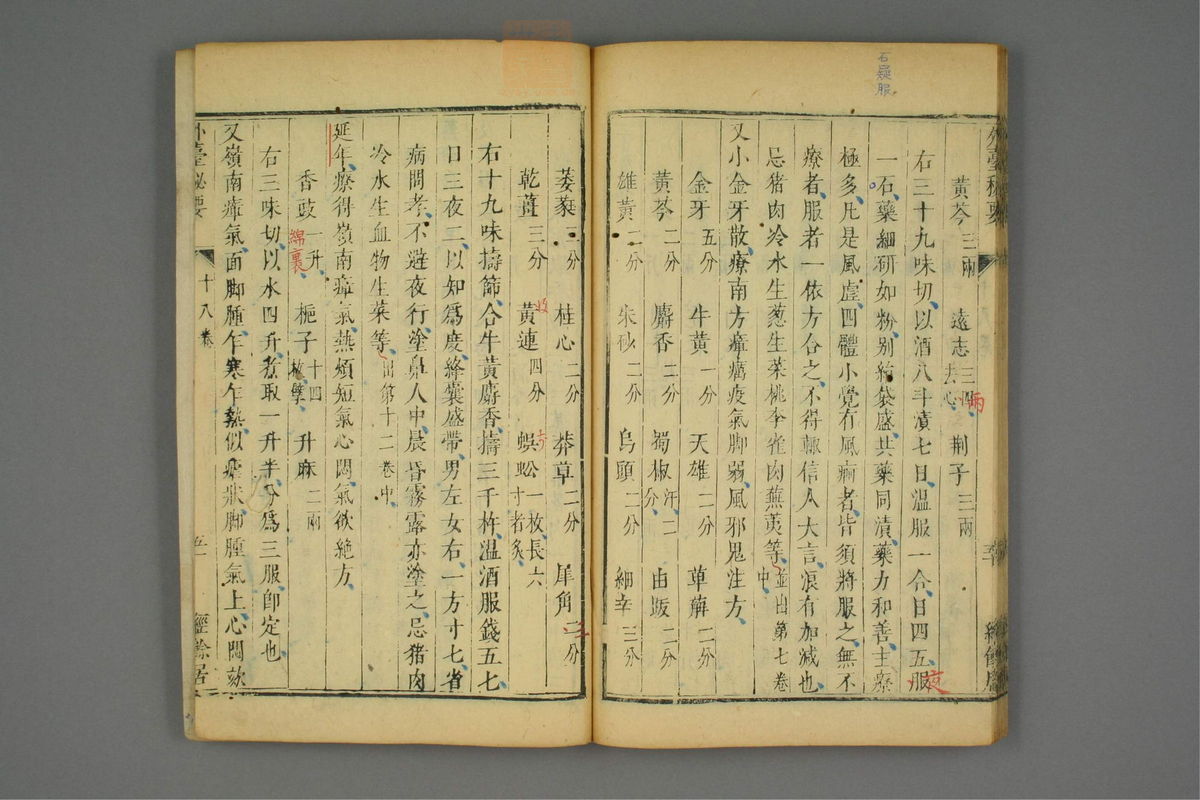 石疑服
黃芩三兩 遠志三兩去心 荆子三兩
右三十九味切以酒八斗漬七日温服一合日四五服
一石藥細研如粉别絹袋盛共藥同漬藥力和善主療
極多凡是風虛四體小覺有風痾者皆須將服之無不
療者服者一依方合之不得輙信人大言浪有加減也
忌猪肉冷水生葱生菜桃李雀肉蕪荑等並出第七卷中
又小金牙散療南方瘴癘疫氣脚弱風邪鬼注方
金牙五分 牛黃一分 天雄二分 萆薢二分
黃芩二分 麝香二分 蜀椒汗二分 由跋二分
雄黃二分 朱砂二分 烏頭二分 細辛三分
萎蕤二分 桂心二分 莽草二分 犀角二分
乾薑三分 黃連四分 蜈蚣一枚長六寸者炙
右十九味擣篩合牛黃麝香擣三千杵温酒服錢五七
日三夜二以知為度絳囊盛帶男左女右一方寸七省
病問孝不避夜行塗鼻人中晨昏霧露亦塗之忌猪肉
冷水生血物生菜等出第十二卷中
延年療得嶺南瘴氣熱煩短氣心悶氣欲絶方
香豉一升綿裹 梔子十四枚擘 升麻二兩
右三味切以水四升煮取一升半分為三服卽定也
又嶺南瘴氣面脚腫乍寒乍熱似瘧狀脚腫氣上心悶欬
外臺秘要 十八卷 五一 經餘居